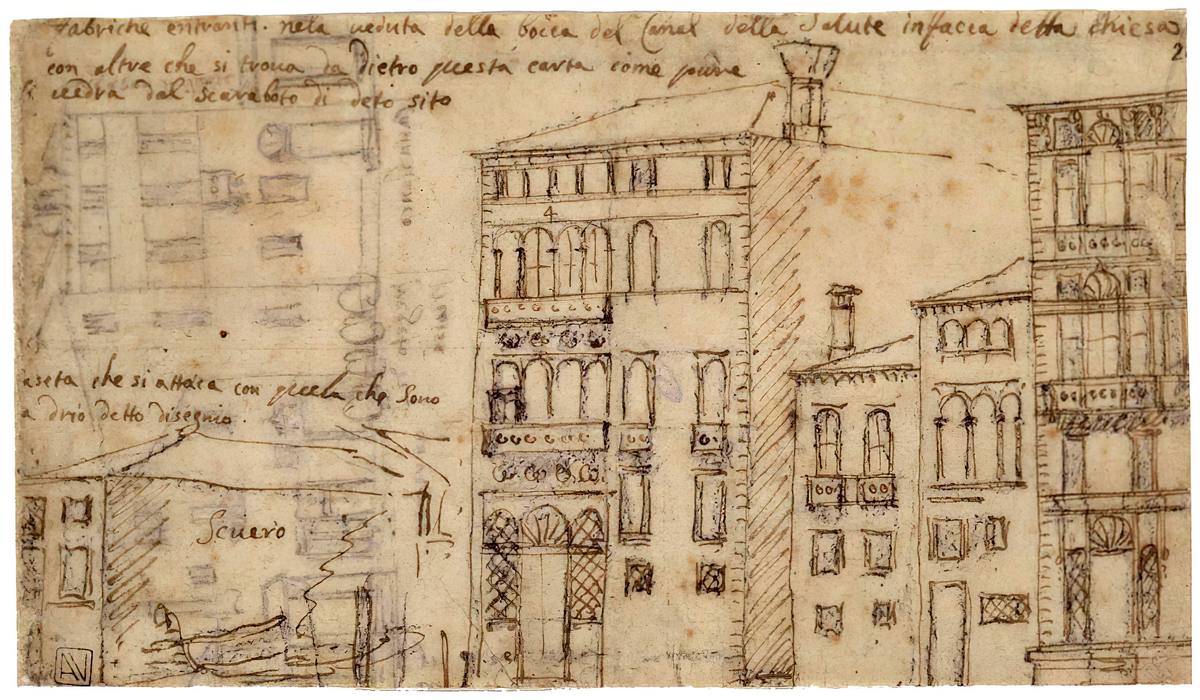 fabriche entranti. nela veduta della bocca del Canal della Salute infacia detta chiesa
2
con altre che si trova da dietro questa carta come pure
si vedrà dal scaraboto di deto sito
4
aseta che si attaca con quela che sono
a drio detto disegnio.
Scuero
AV